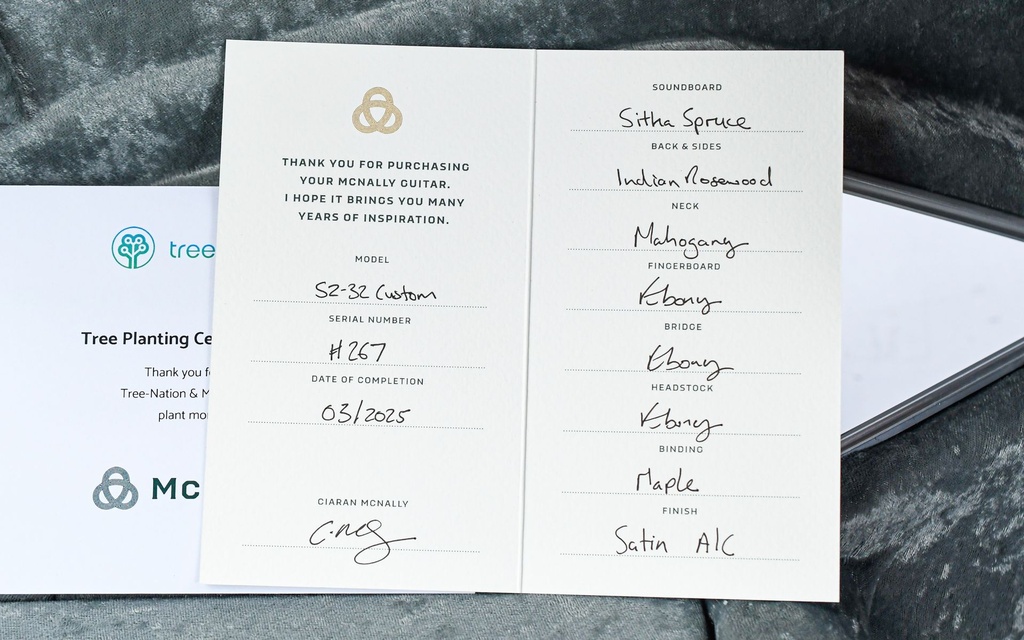 THANK YOU FOR PURCHASING
YOUR MCNALLY GUITAR.
I HOPE IT BRINGS YOU MANY
YEARS OF INSPIRATION.
MODEL
S2-32 Custom
SERIAL NUMBER
#267
DATE OF COMPLETION
03/2025
CIARAN MCNALLY
SOUNDBOARD
Sitka Spruce
BACK & SIDES
Indian Rosewood
NECK
Mahogany
FINGERBOARD
Ebony
BRIDGE
Ebony
HEADSTOCK
Ebony
BINDING
Maple
FINISH
Satin A/C
tree
Tree Planting Ce
Thank you f
Tree-Nation & M
plant mo
MC